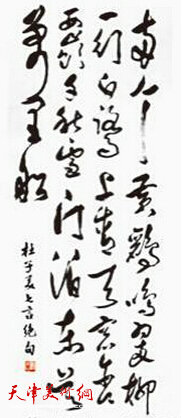 兩个黃鸝鳴翠柳
一行白鷺上青天窗含
西嶺千秋雪门泊东吴
萬里船
杜子美七言绝句
天津美术网